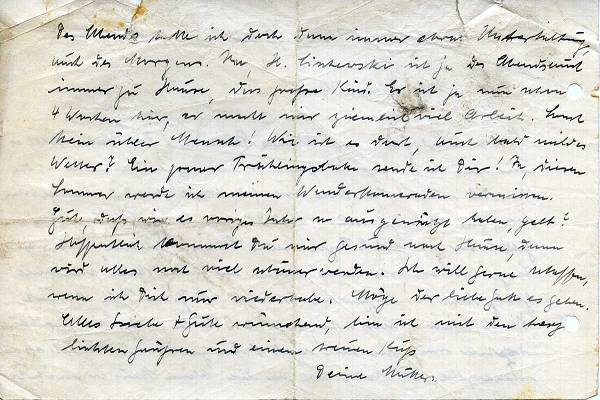 Des Abends hatte ich doch dann immer etwas Unterhaltung,
auch des Morgens. Herr H. ist ja des Abends auch
immer zu Hause, das große Kind. Er ist ja nun schon
4 Wochen hier, er macht mir ziemlich viel Arbeit. Sonst
kein übler Mensch! Wie ist es dort, auch bald mildes
Wetter? Ein paar Frühlingsbote sende ich Dir! Ja, diesen
Sommer werde ich meinen Wanderkameraden vermissen.
Gut, daß wir es voriges Jahr so ausgenützt haben, gelt?
Hoffentlich kommst Du mir gesund nach Hause, dann
wird alles noch viel schöner werden. Ich will gerne schaffen,
wenn ich Dich nur wiederhabe. Möge der liebe Gott es geben.
Alles Liebe + Gute wünschend, bin ich mit den herz
lichsten Grüßen und einem Kuß
Deine Mutter.